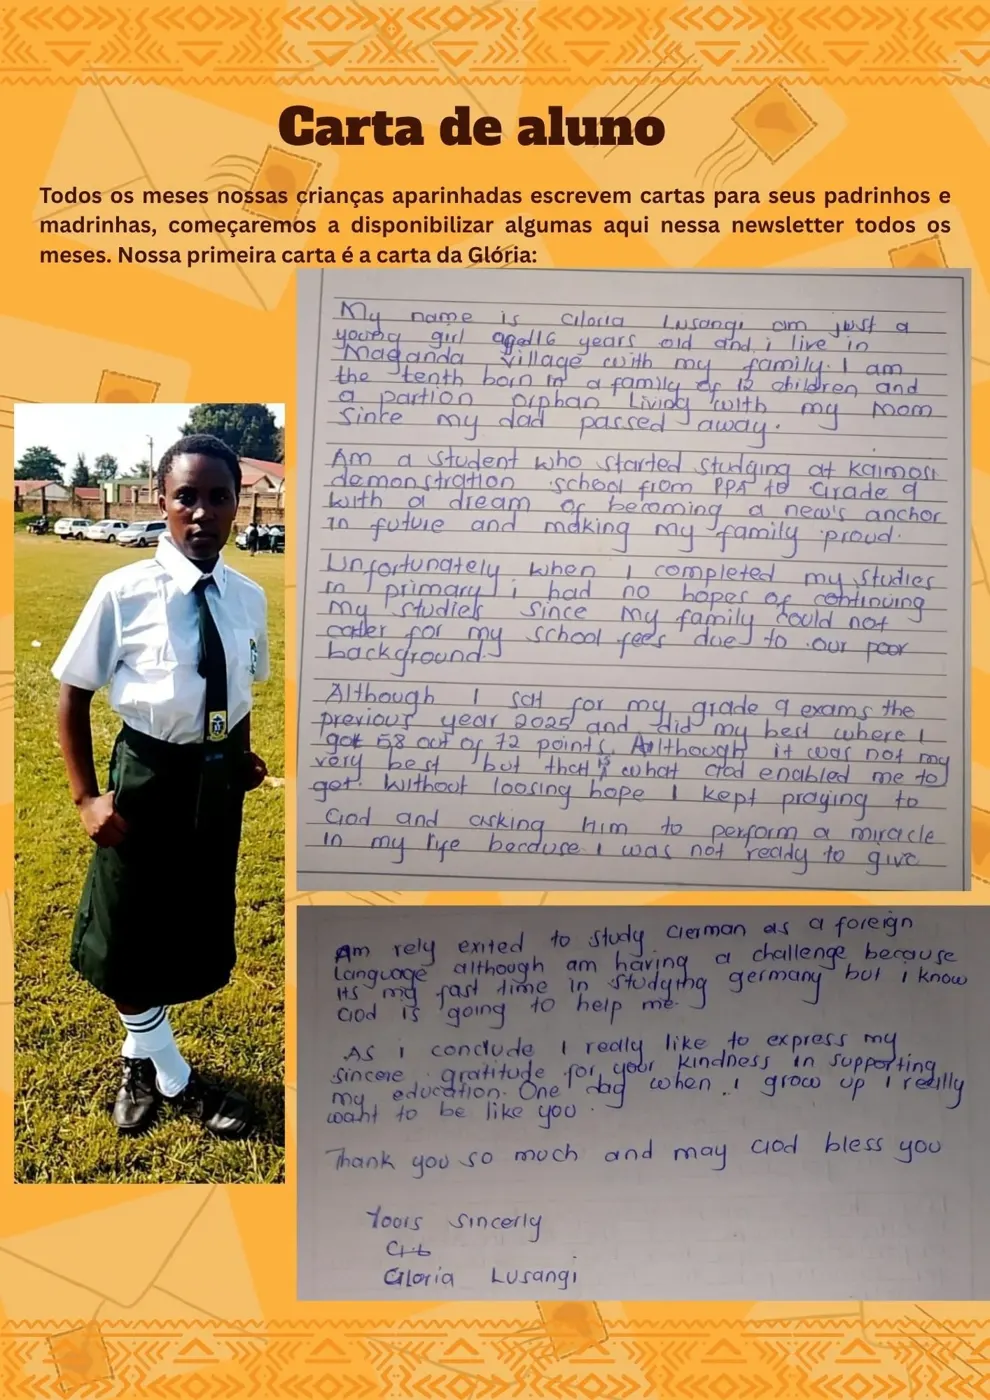 Carta de aluno
Todos os meses nossas crianças aparinhadas escrevem cartas para seus padrinhos e
madrinhas, começaremos a disponibilizar algumas aqui nessa newsletter todos os
meses. Nossa primeira carta é a carta da Glória:
My name is Gloria Lusangi am just a
young girl aged 16 years old and i live in
Maganda village with my family. I am
the tenth born in a family of 12 children and
a partion orphan Living with my mom
Since my dad passed away.
Am a student who started studying at Kaimosi
demonstration school from PP1 to Grade 9
with a dream of becoming a new's anchor
in future and making my family proud.
Unfortunately when I completed my studies
in primary i had no hopes of continuing
my studies since my family could not
cater for my school fees due to our poor
background.
Although I sat for my grade 9 exams the
previous year 2025 and did my best where I
got 58 out of 72 points. Although it was not my
very best but that is what God enabled me to
get. Without loosing hope I kept praying to
God and asking Him to perform a miracle
in my life because I was not ready to give
Am rely exited to study German as a foreign
Language although am having a challenge because
its my fast time in studying germany but i know
God is going to help me.
As i conclude I really like to express my
sincere gratitude for your kindness in supporting
my education. One day when i grow up I really
want to be like you.
Thank you so much and may God bless you
Yours Sincerly
Gloria Lusangi